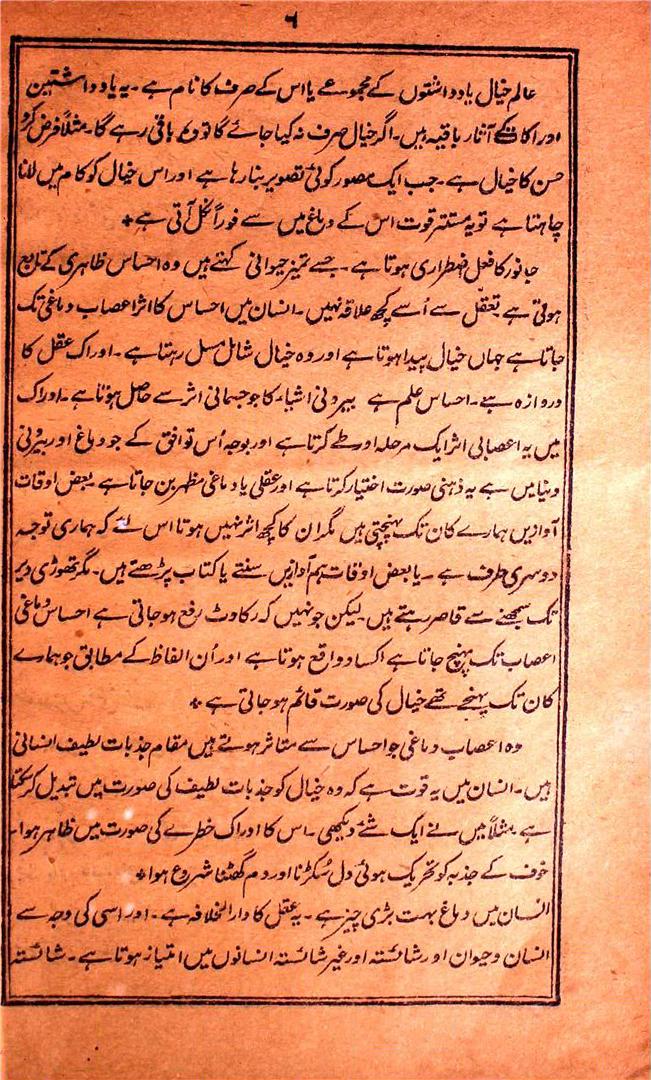 ۶
عالم خیال یادداشتوں کے مجموعے یا اس کے صرف کا نام ہے۔ یہ یادداشتین
ادراکات کے آثار باقیہ ہیں۔ اگر خیال صرف نہ کیا جائے گا تو وہ باقی رہے گا۔ مثلاً فرض کرو
حسن کا خیال ہے۔ جب ایک مصور کوئی تصویر بنا رہا ہے اور اس خیال کو کام میں لانا
چاہتا ہے تو یہ مستتر قوت اس کے دماغ میں سے فوراً نکل آتی ہے *
جانور کا فعل اضطراری ہوتا ہے۔ جسے تمیز حیوانی کہتے ہیں وہ احساس ظاہری کے تابع
ہوتی ہے تعقل سے اُسے کچھ علاقہ نہیں۔ انسان میں احساس کا اثر اعصاب دماغی تک
جاتا ہے جہاں خیال پیدا ہوتا ہے اور وہ خیال شامل مسل رہتا ہے۔ ادراک عقل کا
دروازہ ہے۔ احساس علم ہے بیرونی اشیاء کا جو جسمانی اثر سے حاصل ہوتا ہے۔ ادراک
میں یہ اعصابی اثر ایک مرحلہ اور طے کرتا ہے اور بوجہ اُس توافق کے جو دماغ اور بیرونی
دنیا میں ہے یہ ذہنی صورت اختیار کرتا ہے اور عقلی یا دماغی مظہر بن جاتا ہے۔ بعض اوقات
آوازیں ہمارے کان تک پہنچتی ہیں مگر ان کا کچھ اثر نہیں ہوتا اس لئے کہ ہماری توجہ
دوسری طرف ہے۔ یا بعض اوقات ہم آوازیں سنتے یا کتاب پڑھتے ہیں۔ مگر تھوڑی دیر
تک سمجھنے سے قاصر رہتے ہیں۔ لیکن جونہیں کہ رکاوٹ رفع ہو جاتی ہے احساس دماغی
اعصاب تک پہنچ جاتا ہے اکساد واقع ہوتا ہے اور اُن الفاظ کے مطابق جو ہمارے
کان تک پہنچے تھے خیال کی صورت قائم ہو جاتی ہے *
وہ اعصاب دماغی جو احساس سے متاثر ہوتے ہیں مقام جذبات لطیف انسانی
ہیں۔ انسان میں یہ قوت ہے کہ وہ خیال کو جذبات لطیف کی صورت میں تبدیل کر سکتا
ہے مثلاً میں نے ایک شئے دیکھی۔ اس کا ادراک خطرے کی صورت میں ظاہر ہوا۔
خوف کے جذبہ کو تحریک ہوئی دل سُکڑنا اور دم گھٹنا شروع ہوا *
انسان میں دماغ بہت بڑی چیز ہے۔ یہ عقل کا دارالخلافہ ہے۔ اور اسی کی وجہ سے
انسان و حیوان اور شائستہ اور غیر شائستہ انسانوں میں امتیاز ہوتا ہے۔ شائستہ